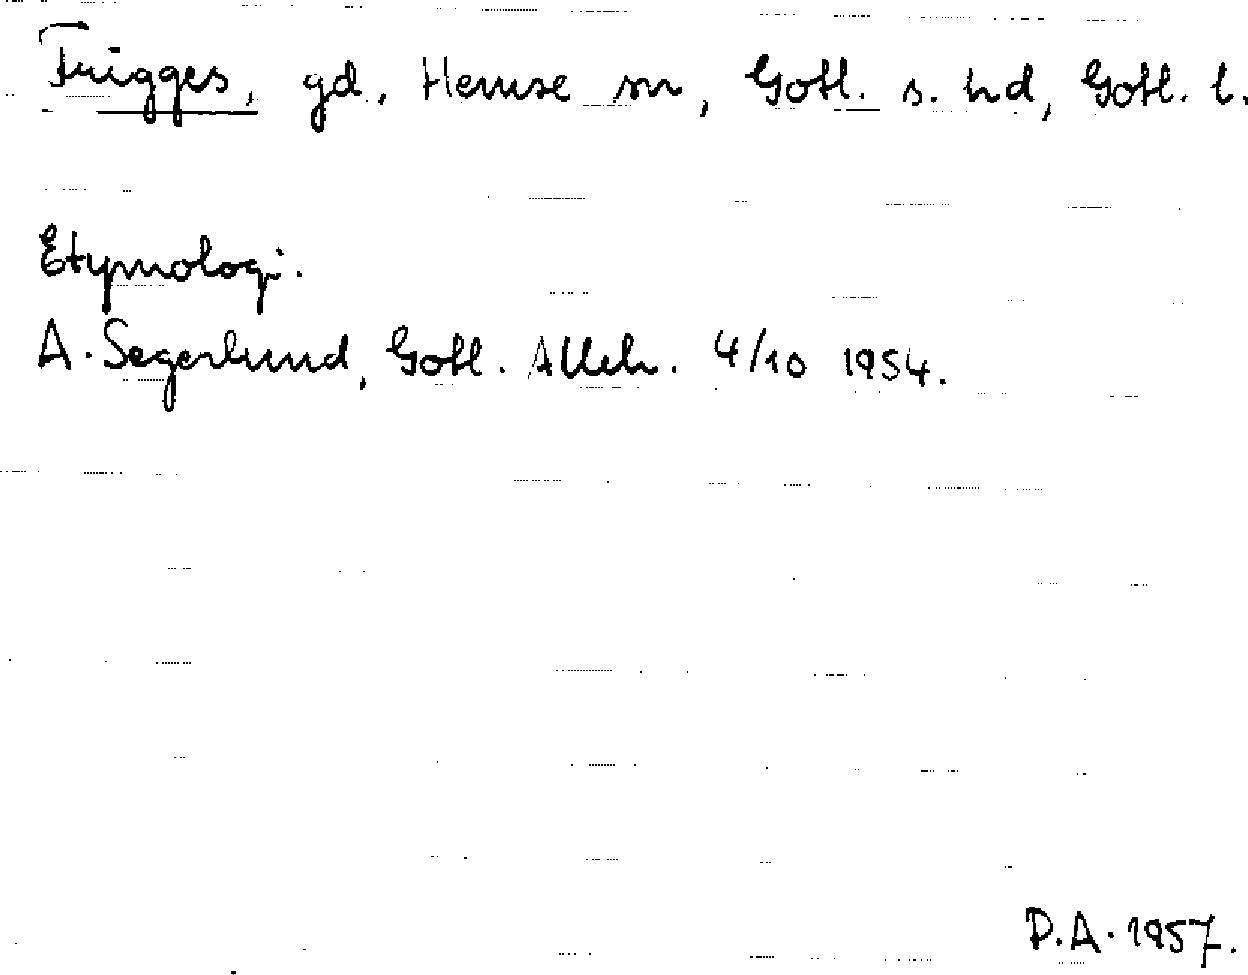 Frigges, gd, Hemse sn, Gotl. s. hd, Gotl. l.
Etymologi.
A. Segerlund, Gotl. Alleh. 4/10 1954.
P.A. 1957.